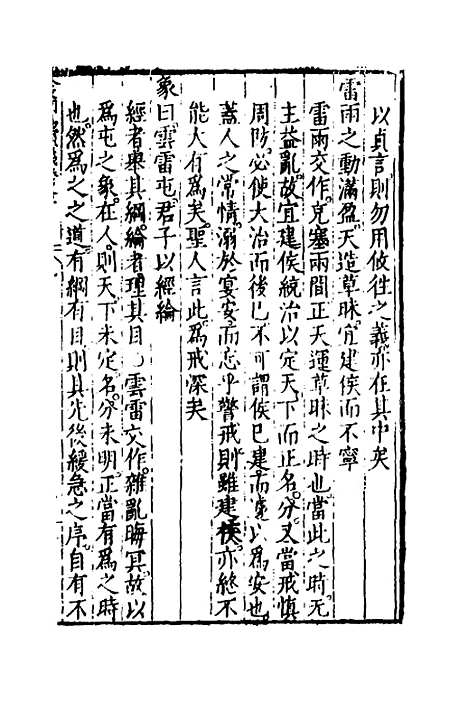 以貞言則勿用攸往之義亦在其中矣
雷雨之動滿盈天造草昧宜建侯而不寧
雷雨交作充塞兩間正天運草昧之時也當此之時无
主益亂故宜建侯統治以定天下而正名分又當戒慎
周防必使大治而後已不可謂侯已建而遽以為安也
蓋人之常情溺於宴安而忘乎警戒則雖建侯亦終不
能大有為矣聖人言此為戒深矣
象曰雲雷屯君子以經綸
經者舉其綱綸者理其目 雲雷交作雜亂晦冥故以
為屯之象在人則天下未定名分未明正當有為之時
也然為之之道有綱有目則其先後緩急之序自有不